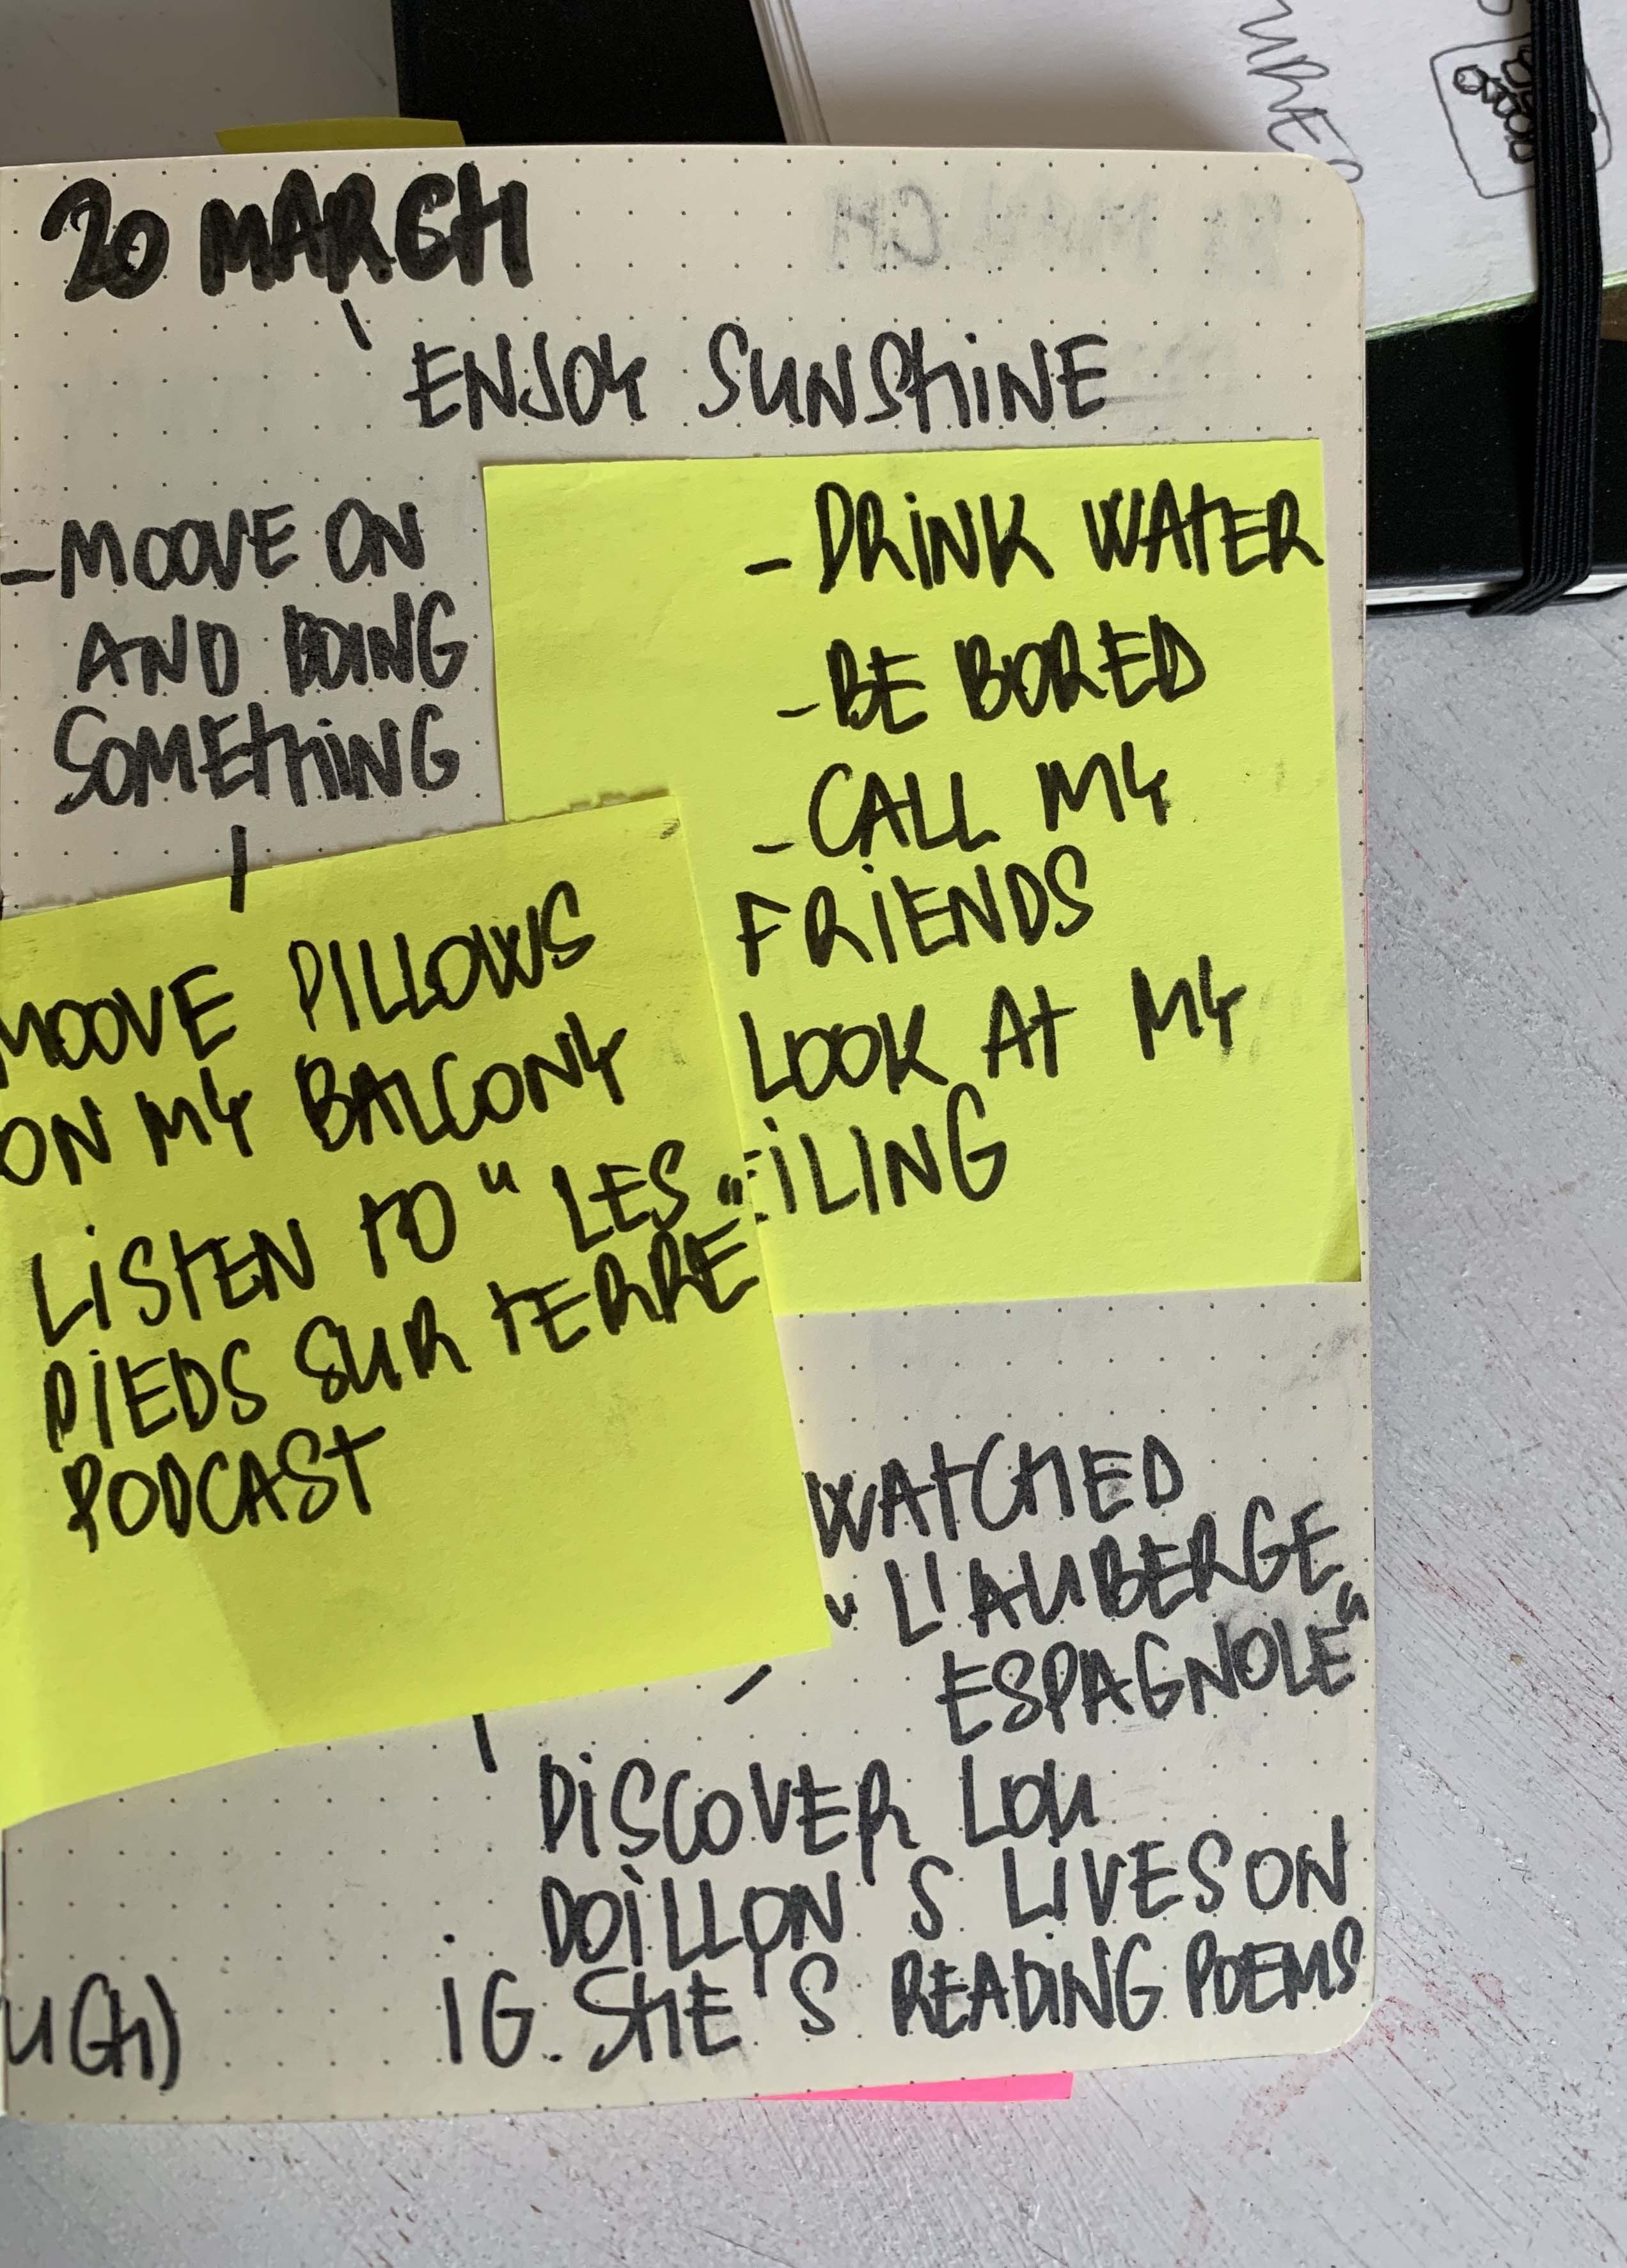 20 MARCH
ENJOY SUNSHINE
- MOOVE ON
AND DOING
SOMETHING
- DRINK WATER
- BE BORED
- CALL MY
FRIENDS
LOOK AT MY
EILING
MOOVE PILLOWS
ON MY BALCONY
LISTEN TO "LES
PIEDS SUR TERRE"
PODCAST
WATCHED
"L'AUBERGE
ESPAGNOLE"
DISCOVER LOU
DOILLON'S LIVES ON
IG. SHE'S READING POEMS
UGH)